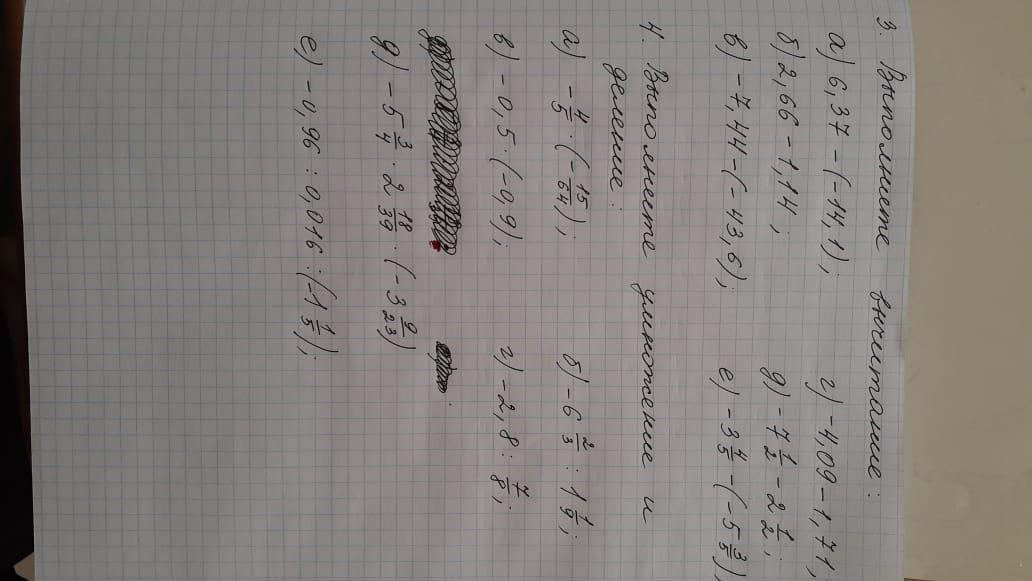 3. Выполнете вычитание:
а) 6,37 - (-14,1); г) -4,09 - 1,71;
б) 2,66 - 1,14; д) -7 1/2 - 2 1/2;
в) -7,44 - (-43,6); е) -3 4/5 - (-5 3/5),
4. Выполнесте умножение и
деление:
а) -4/5 · (-15/64); б) -6 2/3 : 1 1/9;
в) -0,5 · (-0,9); г) -2,8 : 7/8;
д) -5 3/4 · 2 18/39 · (-3 9/23)
е) -0,96 : 0,016 : (-1 1/5);